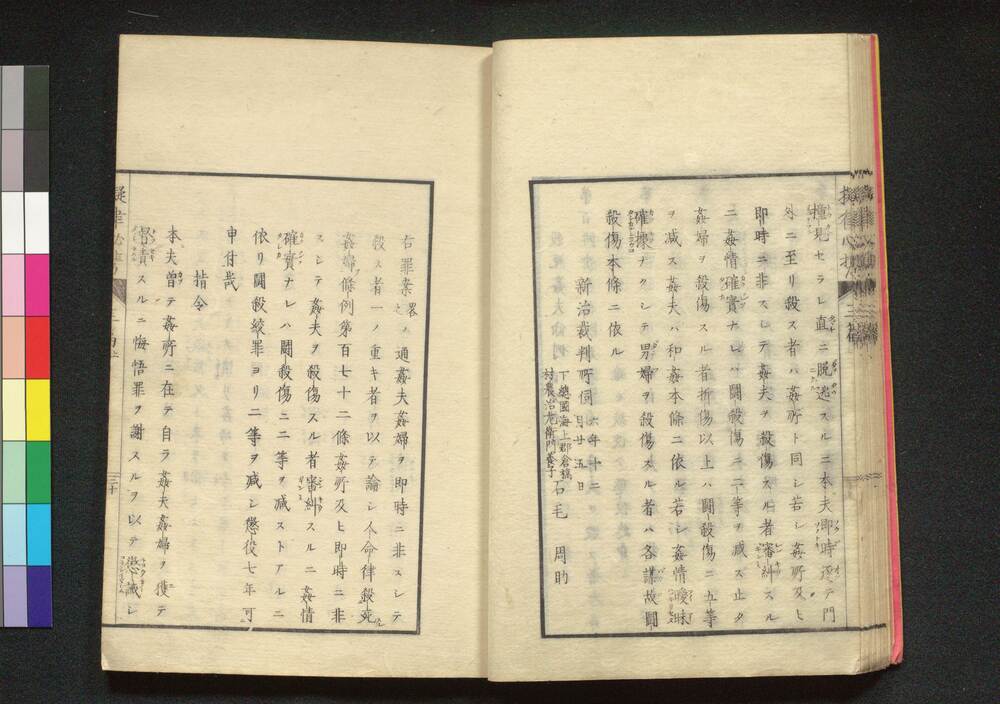 撞見セラレ直ニ脱逃スルニ本夫即時逐テ門
外ニ至リ殺ス者ハ姦所ト同シ若シ姦所及ヒ
即時ニ非スシテ姦夫ヲ殺傷スル者審糾スル
ニ姦情確實ナレハ鬪殺傷ニ二等ヲ減ス止タ
姦婦ヲ殺傷スル者折傷以上ハ鬪殺傷ニ五等
ヲ減ス姦夫ハ和姦本條ニ依ル若シ姦情曖昧
確據ナクシテ男婦ヲ殺傷スル者ハ各謀故鬪
殺傷本條ニ依ル
新治裁判所伺 六年十二月廿五日
下總國海上郡倉橋村農治左衛門養子 石毛 周助
右罪案畧之ノ通姦夫姦婦ヲ即時ニ非スシテ
殺ス者一ノ重キ者ヲ以テ論シ人命律殺死
姦婦條例第百七十二條姦所及ヒ即時ニ非
スシテ姦夫ヲ殺傷スル者審糾スルニ姦情
確實ナレハ鬪殺傷ニ二等ヲ減ストアルニ
依リ鬪殺絞罪ヨリ二等ヲ減シ懲役七年可
申付哉
指令
本夫曽テ姦所ニ在テ自ラ姦夫姦婦ヲ獲テ
督責スルニ悔悟罪ヲ謝スルヲ以テ懲誡シ